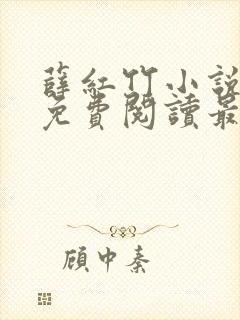 薛紅竹小說
免費閱讀最
顧中秦